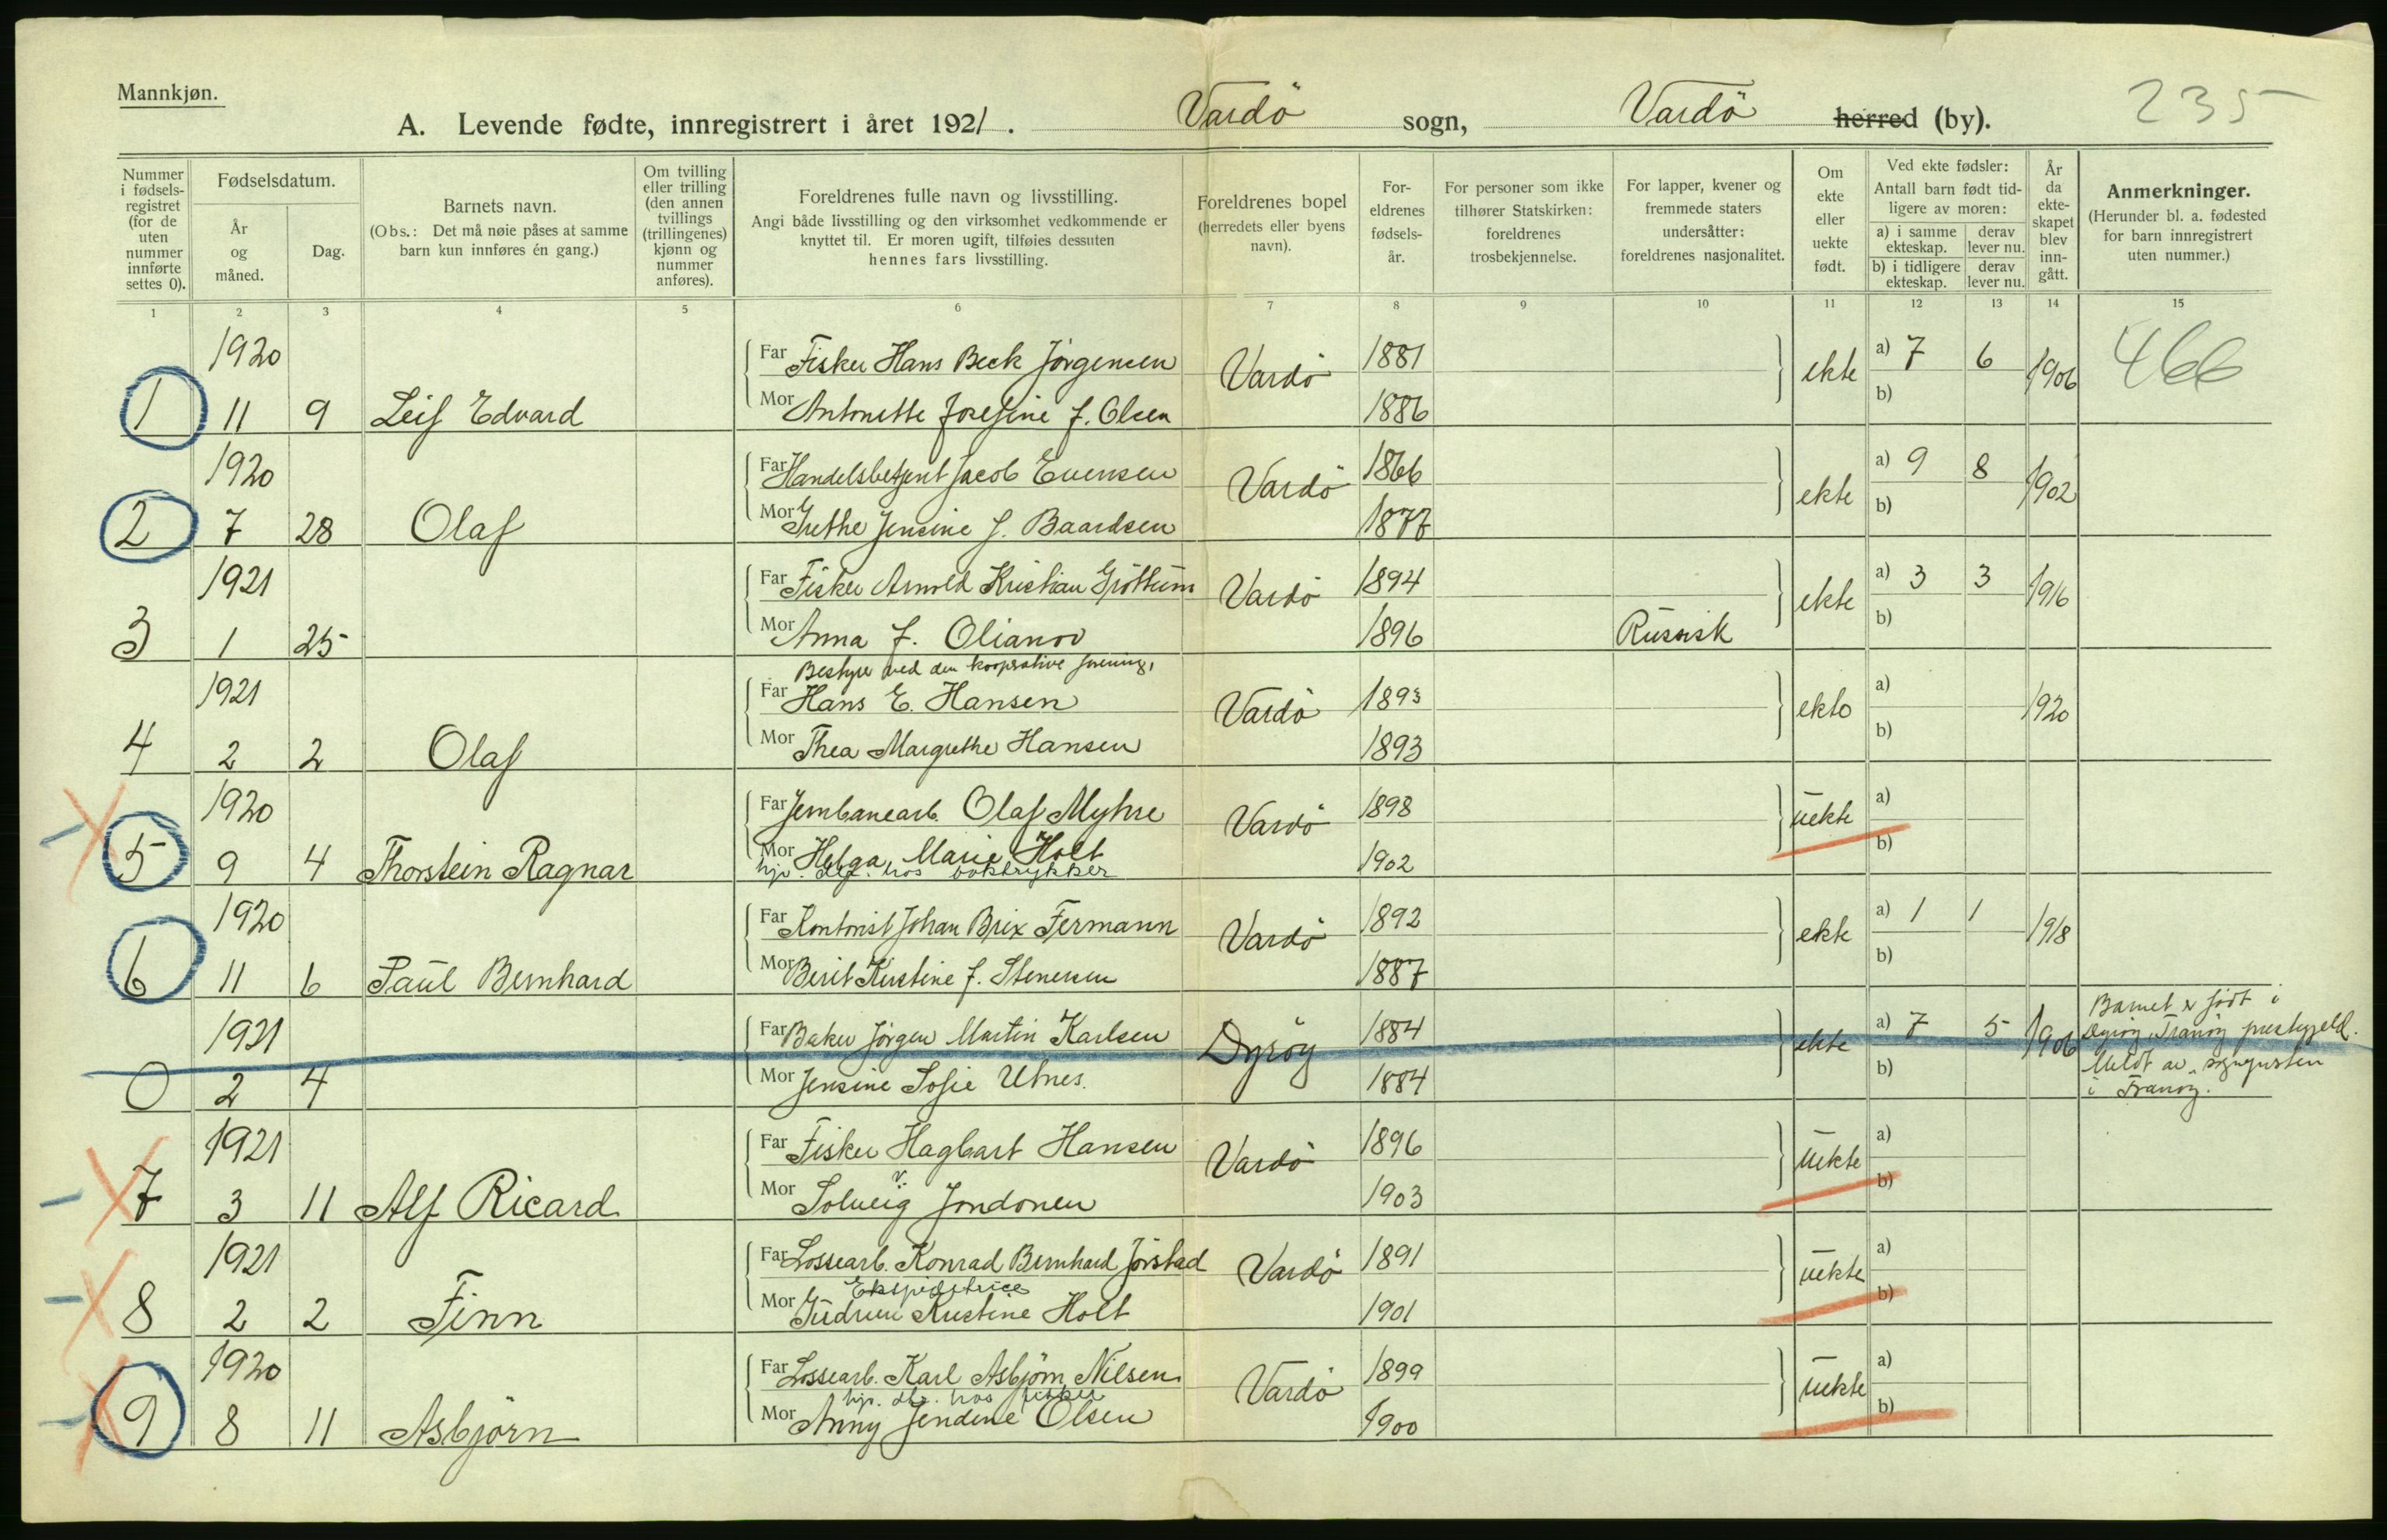 Mannkjøn.
A. Levende fødte, innregistrert i året 1921. Vardö sogn, Vardö herred (by). 235
Nummer i fødsels-registret (for de uten nummer innførte settes 0).
Fødselsdatum.
År og måned.
Dag.
Barnets navn.
(Obs.: Det må nøie påses at samme barn kun innføres én gang.)
Om tvilling eller trilling (den annen tvillings (trillingenes) kjønn og nummer anføres).
Foreldrenes fulle navn og livsstilling.
Angi både livsstilling og den virksomhet vedkommende er knyttet til. Er moren ugift, tilføies dessuten hennes fars livsstilling.
Foreldrenes bopel (herredets eller byens navn).
For-eldrenes fødsels-år.
For personer som ikke tilhører Statskirken: foreldrenes trosbekjennelse.
For lapper, kvener og fremmede staters undersåtter: foreldrenes nasjonalitet.
Om ekte eller uekte født.
Ved ekte fødsler:
Antall barn født tid-ligere av moren:
a) i samme ekteskap. derav lever nu.
b) i tidligere ekteskap. derav lever nu.
År da ekte-skapet blev inn-gått.
Anmerkninger.
(Herunder bl. a. fødested for barn innregistrert uten nummer.)
1 2 3 4 5 6 7 8 9 10 11 12 13 14 15
1920 Far Fisker Hans Beck Jörgensen Vardö 1881 ekte a) 7 6 1906 466
1 11 9 Leif Edvard Mor Antonette Josefine f. Olsen 1886 b)
1920 Far Handelsbetjent Jacob Evensen Vardö 1866 ekte a) 9 8 1902
2 7 28 Olaf Mor Grethe Jensine f. Baardsen 1877 b)
1921 Far Fisker Arnold Kristian Gröttum Vardö 1894 ekte a) 3 3 1916
3 1 25 Mor Anna f. Olianov 1896 Russisk b)
Bestyr ved den kooperative forening,
1921 Far Hans E. Hansen Vardö 1893 ekte a) 1920
4 2 2 Olaf Mor Thea Margrethe Hansen 1893 b)
1920 Far Jernbanearb. Olaf Myhre Vardö 1898 uekte a)
5 9 4 Thorstein Ragnar Mor Helga Marie Holt 1902 b)
hjp. hos boktrykker
1920 Far Kontorist Johan Brix Fermann Vardö 1892 ekte a) 1 1 1918
6 11 6 Paul Bernhard Mor Berit Kirstine f. Stenersen 1887 b)
1921 Far Baker Jörgen Martin Karlsen Dyröy 1884 ekte a) 7 5 1906 Barnet er födt i
Dyröy, Tranöy prestegjeld.
0 2 4 Mor Jensine Sofie Utnes. 1884 b) Meldt av sognepresten
i Tranöy.
1921 Far Fisker Hagbart Hansen Vardö 1896 uekte a)
7 3 11 Alf Ricard Mor Solveig Jondonen 1903 b)
1921 Far Lossearb. Konrad Bernhard Jörstad Vardö 1891 uekte a)
Ekspeditrice
8 2 2 Finn Mor Gudrun Kirstine Holt 1901 b)
1920 Far Lossearb. Karl Asbjörn Nilsen Vardö 1899 uekte a)
hjp. hos
9 8 11 Asbjörn Mor Anny Jendine Olsen 1900 b)